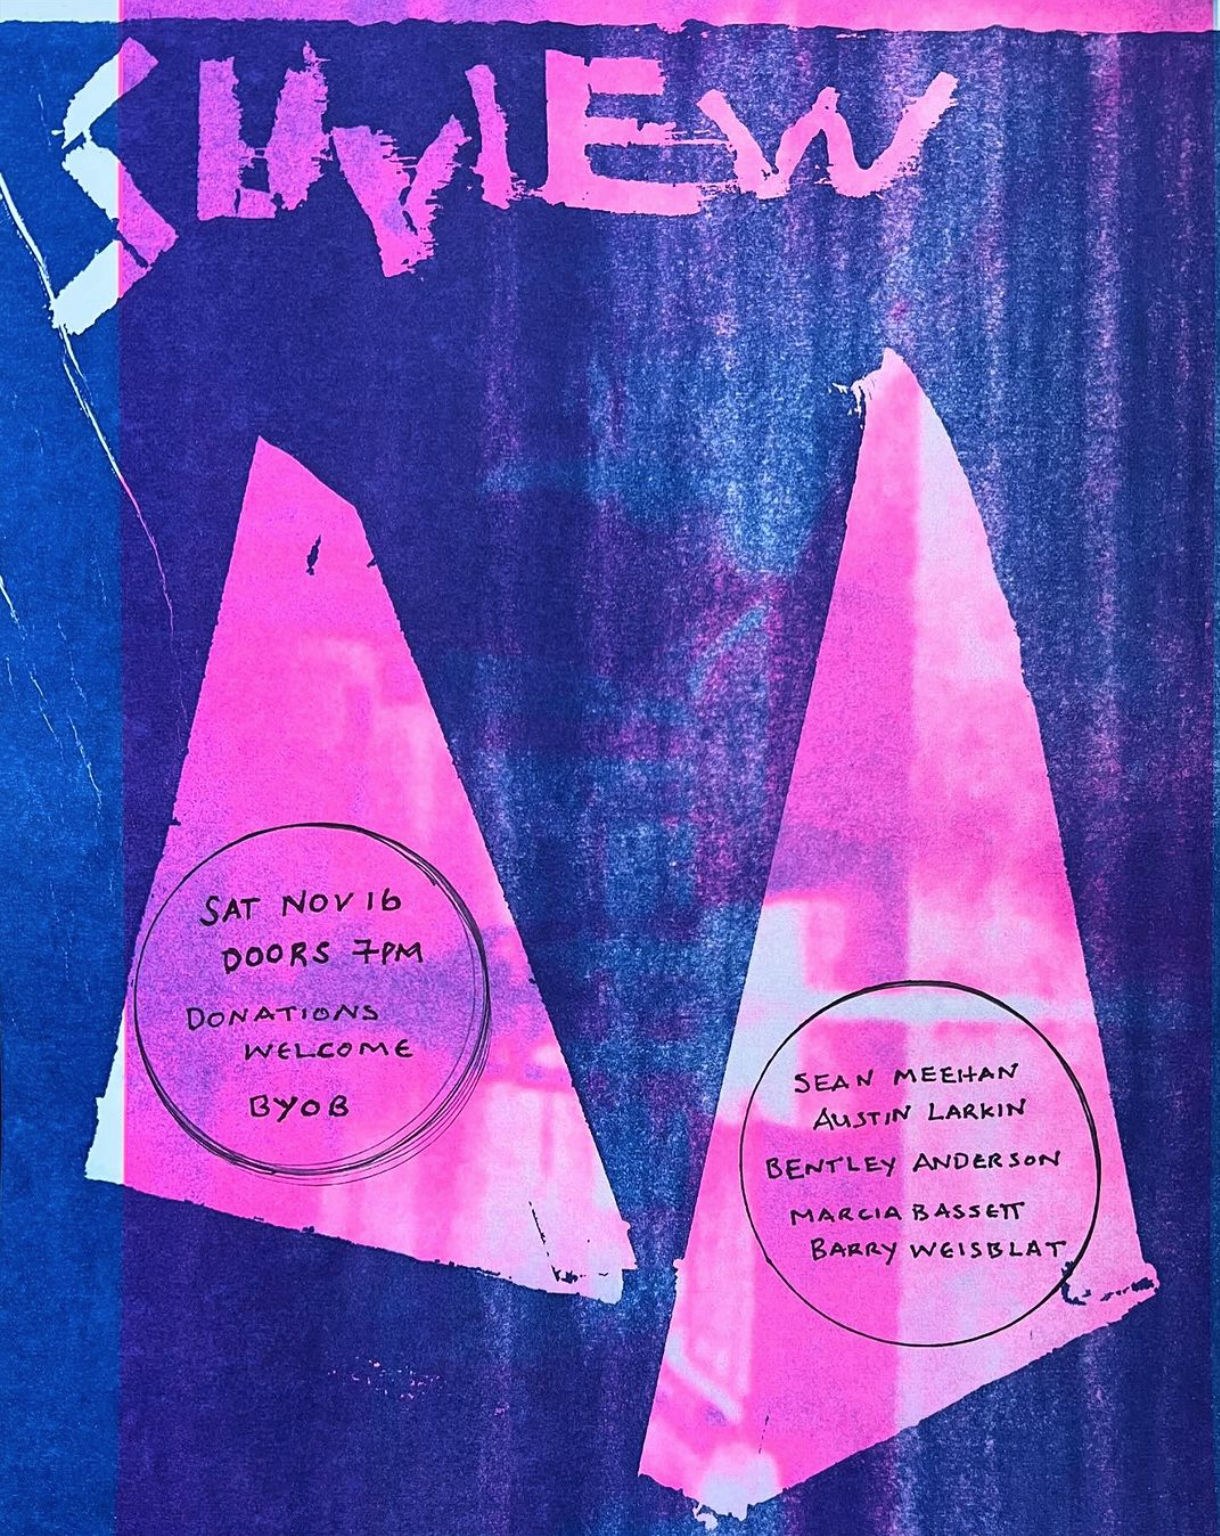 SUNVIEW
SAT NOV 16
DOORS 7PM
DONATIONS
WELCOME
BYOB
SEAN MEEHAN
AUSTIN LARKIN
BENTLEY ANDERSON
MARCIA BASSETT
BARRY WEISBLAT